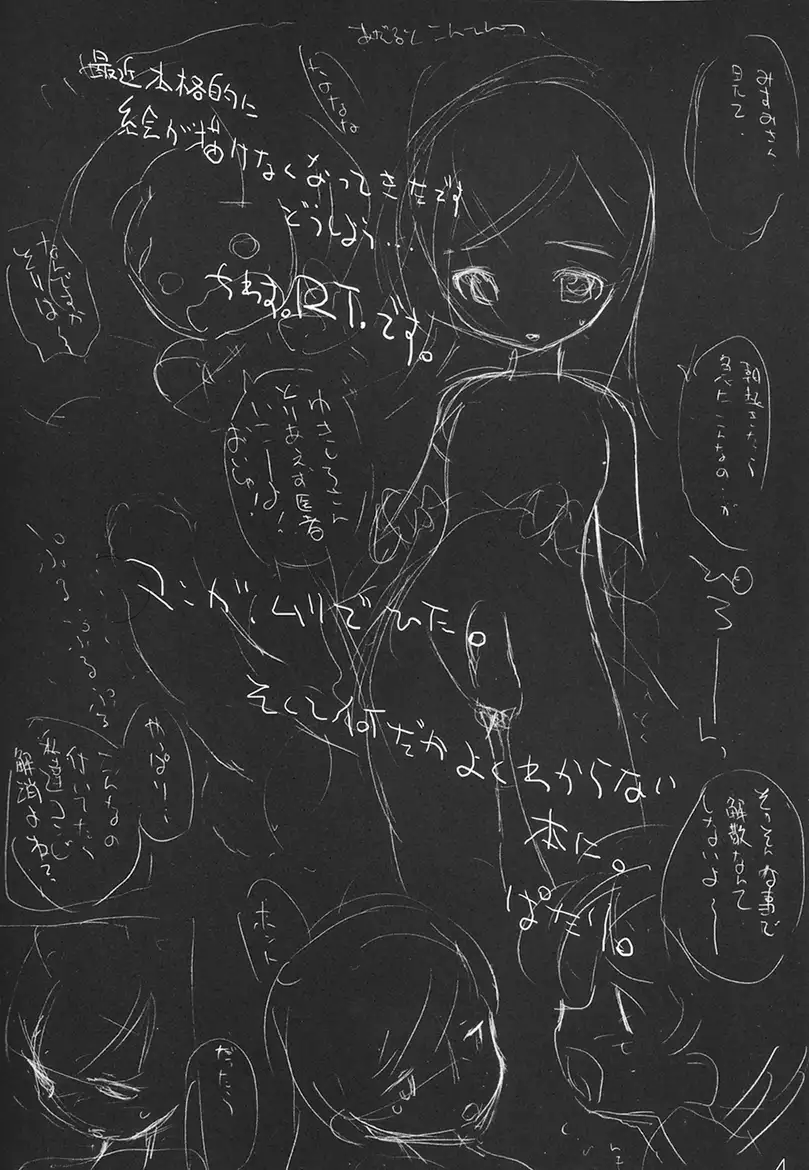 最近本格的に
絵が描けなくなってきたです
どうしよう…
ちわす。R.T.です。
マンガ、ムリでひた。
そして何だかよくわからない
本に。
ぱたり。
みすみさん
見て、
なんですか
それは〜
ゆきしろさん
とりあえず医者
いこーよ!
おいしゃ!
朝起きたら
急にこんなの…が
ぴろーん
ぷるぷるぷる
やっぱり…
こんなの
付いてたら
私達コンビ
解消よねて、
そ、そんな事で
解散なんて
しないよ〜
ホント
だったら